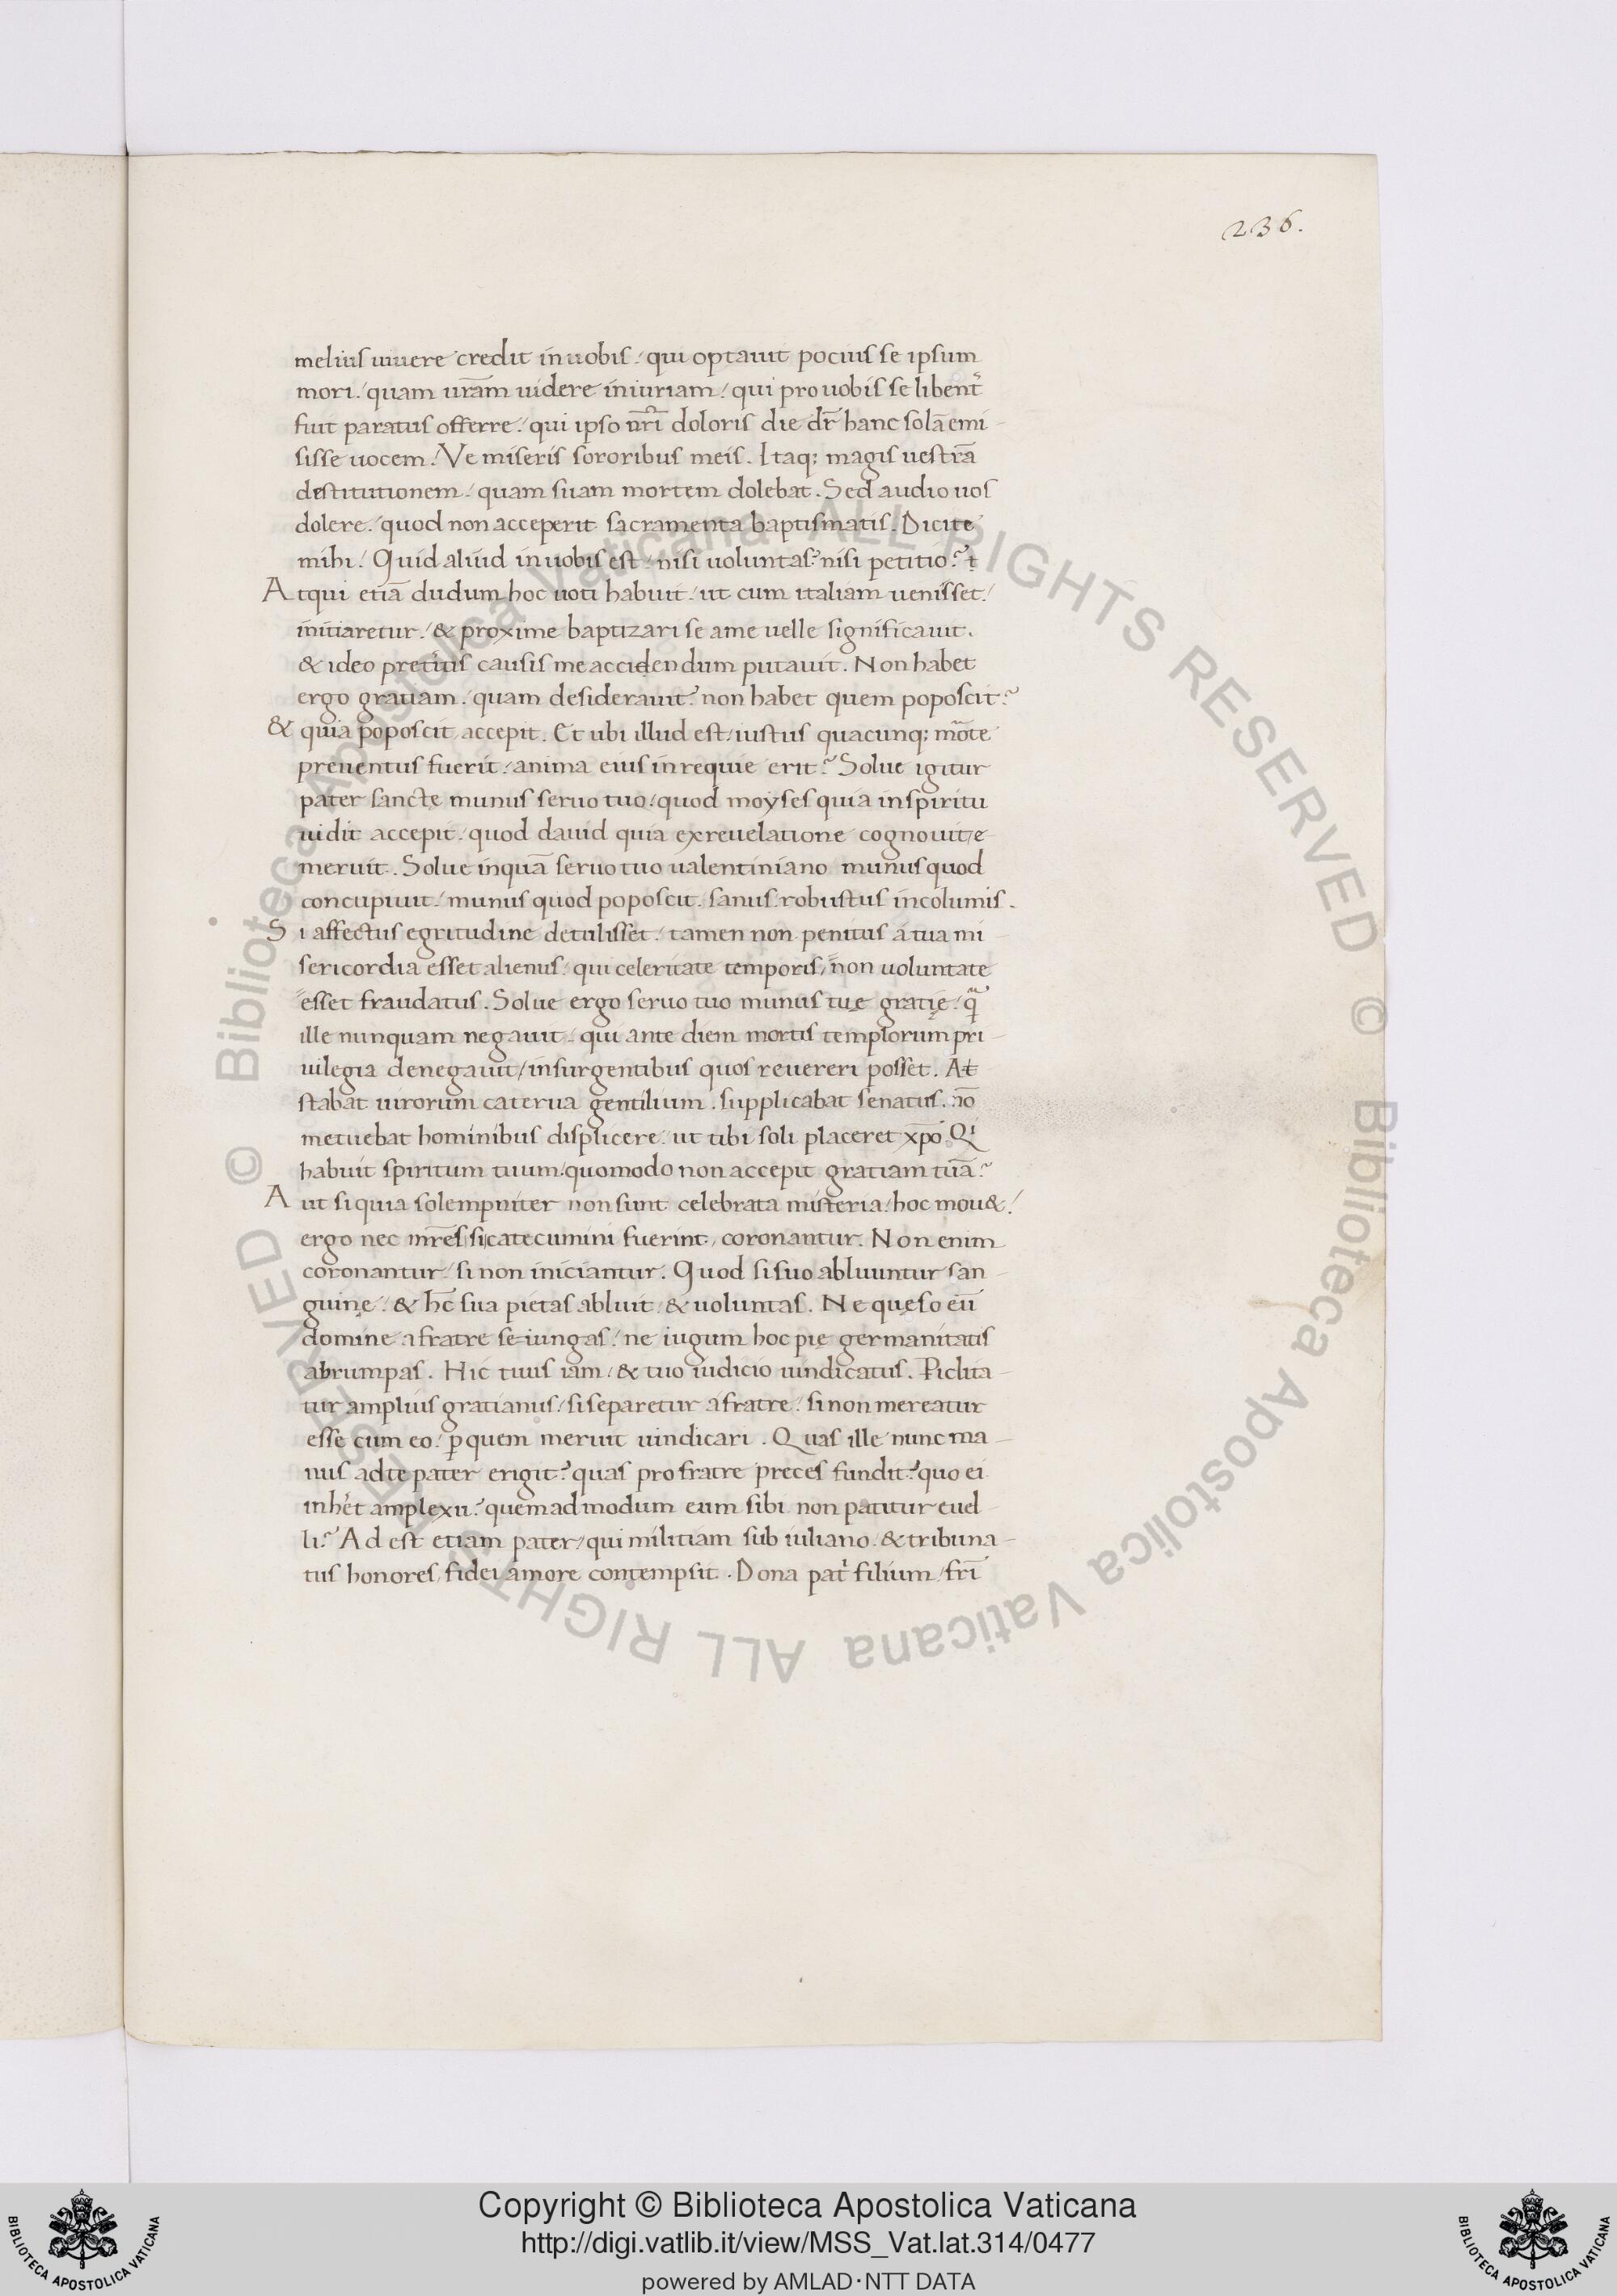 236.
melius uiuere credit in uobis. qui optauit pocius se ipsum
mori. quam ur̄am uidere iniuriam. qui pro uobis se libent̉
fuit paratus offerre. qui ipso nr̄i doloris die dr̄ hanc solā emi
sisse uocem. Ve miseris sororibus meis. Itaq; magis uestrā
destitutionem. quam suam mortem dolebat. Sed audio uos
dolere. quod non acceperit sacramenta baptismatis. Dicite
mihi. Quid aliud in uobis est. nisi uoluntas? nisi petitio?
Atqui etiā dudum hoc uoti habuit. ut cum italiam uenisset.
initiaretur. & proxime baptizari se a me uelle significauit.
& ideo pret̉itis causis me acciden dum putauit. Non habet
ergo gratiam. quam desiderauit? non habet quem poposcit?
& quia poposcit accepit. Et ubi illud est. iustus quacunq; mo͛te
preuentus fuerit. anima eius in requie erit? Solue igitur
pater sancte munus seruo tuo. quod moyses quia in spiritu
uidit accepit. quod dauid quia ex reuelatione cognouit
meruit. Solue inquā seruo tuo ualentiniano munus quod
concupiuit. munus quod poposcit. sanus. robustus incolumis.
Si affectus egritudine detulisset. tamen non penitus a tua mi
sericordia esset alienus. qui celeritate temporis, non uoluntate
esset fraudatus. Solue ergo seruo tuo munus tuę gratię. qͣ
ille nunquam negauit. qui ante diem mortis templorum pri
uilegia denegauit, insurgentibus quos reuereri posset. At
stabat uirorum caterua gentilium. supplicabat senatus. nō
metuebat hominibus displicere. ut tibi soli placeret xp̄o. Qͥ
habuit spiritum tuum. quomodo non accepit gratiam tuā?
Aut si quia solempniter non sunt celebrata misteria. hoc mou&.
ergo nec mr̄es si catecumini fuerint, coronantur. Non enim
coronantur. si non iniciantur. Quod si suo abluuntur san
guine. & hc̄ sua pietas abluit. & uoluntas. Ne quęso eū
domine a fratre seiungas. ne iugum hoc pię germanitatis
abrumpas. Hic tuus iam. & tuo iudicio uindicatus. Ꝑiclita
tur amplius gratianus. si separetur a fratre. si non mereatur
esse cum eo. ꝑ quem meruit uindicari. Quas ille nunc ma
nus ad te pater erigit? quas pro fratre preces fundit? quo ei
inhe̓t amplexu? quemadmodum eum sibi non patitur euel
li? Ad est etiam pater. qui militiam sub iuliano. & tribuna
tus honores, fidei amore contempsit. Dona pat̉ filium. fr̄i
Copyright © Biblioteca Apostolica Vaticana
http://digi.vatlib.it/view/MSS_Vat.lat.314/0477
powered by AMLAD·NTT DATA
BIBLIOTECA APOSTOLICA VATICANA
BIBLIOTECA APOSTOLICA VATICANA
© Biblioteca Apostolica Vaticana ALL RIGHTS RESERVED © Biblioteca Apostolica Vaticana ALL RIGHTS RESERVED